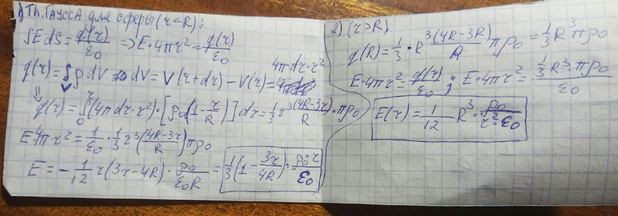 1) Тл. ГАУССА для сферы (r<R):
∫EdS = q(r)/ε0 => E·4πr² = q(r)/ε0
q(r) = ∫ρdV => dV = V(r+dr) - V(r) = 4πdr·r²
q(r) = ∫(4πdr·r²)·[ρ0(1 - r/R)]dr = 1/3 r³(4R-3r)/R · πρ0
E4πr² = 1/ε0 · 1/3 r³(4R-3r)/R πρ0
E = -1/12 r(3r-4R)· ρ0/ε0R = 1/3(1 - 3r/4R)· ρ0r/ε0
2) (r>R)
q(R) = 1/3 · R³(4R-3R)/R πρ0 = 1/3 R³πρ0
E·4πr² = q(r)/ε0 ; E·4πr² = 1/3 R³πρ0/ε0
E(r) = 1/12 R³ · ρ0/r²·ε0